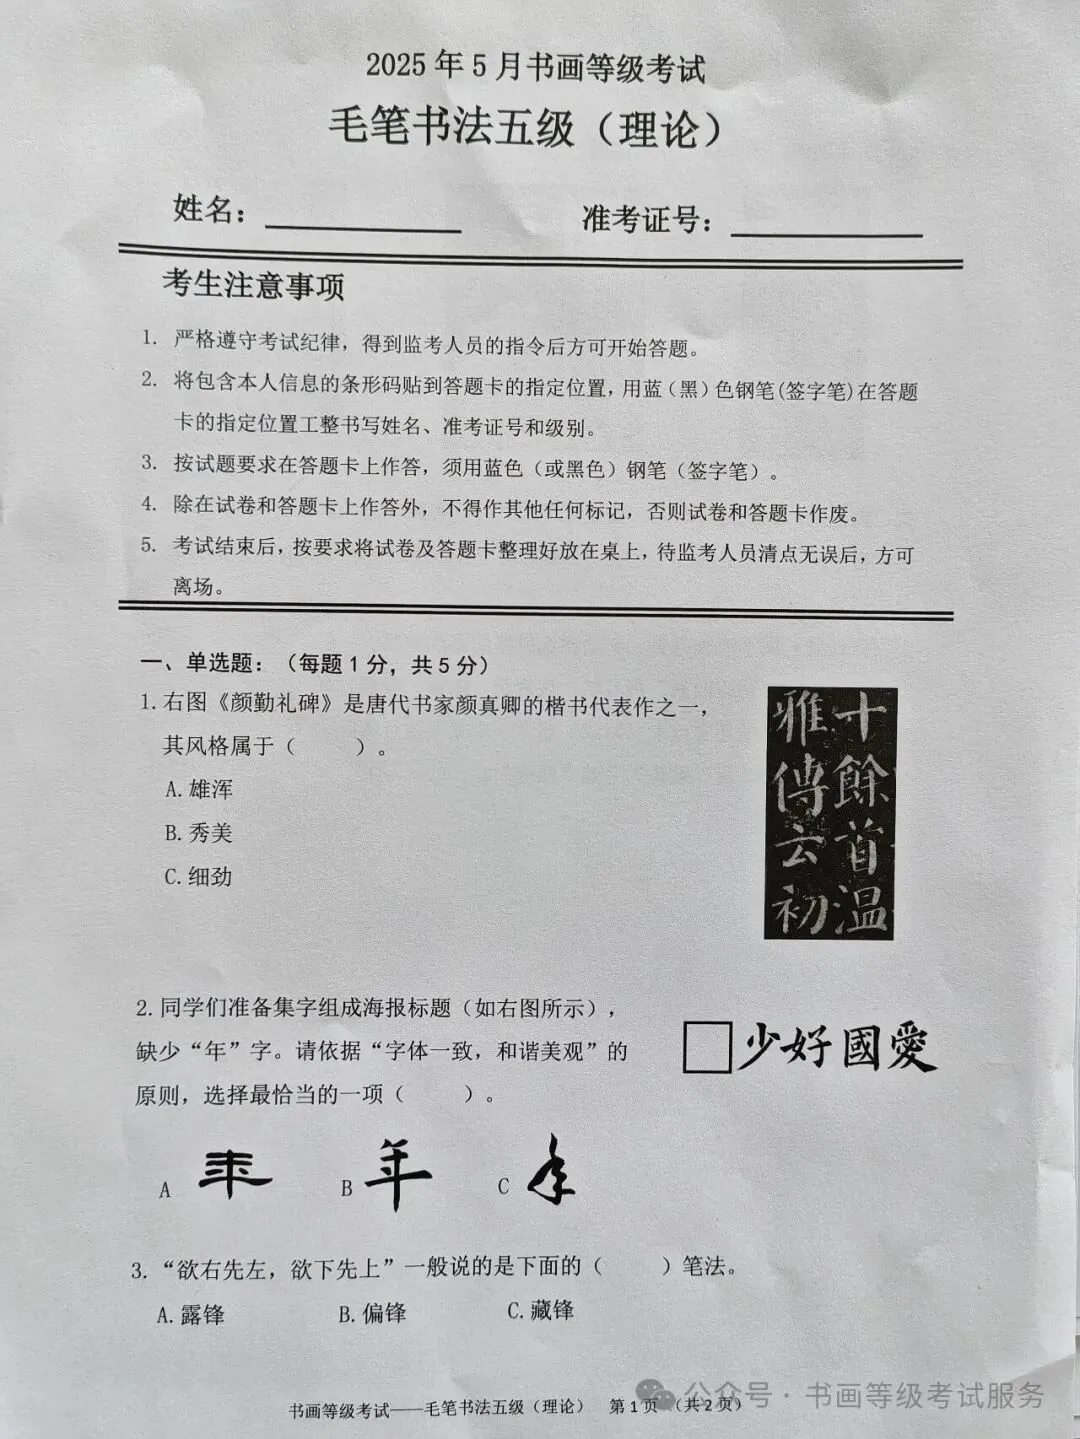 2025 年 5 月书画等级考试
毛笔书法五级（理论）
姓名：
准考证号：
考生注意事项
1. 严格遵守考试纪律，得到监考人员的指令后方可开始答题。
2. 将包含本人信息的条形码贴到答题卡的指定位置，用蓝（黑）色钢笔(签字笔)在答题
卡的指定位置工整书写姓名、准考证号和级别。
3. 按试题要求在答题卡上作答，须用蓝色（或黑色）钢笔（签字笔）。
4. 除在试卷和答题卡上作答外，不得作其他任何标记，否则试卷和答题卡作废。
5. 考试结束后，按要求将试卷及答题卡整理好放在桌上，待监考人员清点无误后，方可
离场。
一、单选题：（每题 1 分，共 5 分）
1. 右图《颜勤礼碑》是唐代书家颜真卿的楷书代表作之一，
其风格属于（　　）。
A. 雄浑
B. 秀美
C. 细劲
十餘首温
雅傳云初
2. 同学们准备集字组成海报标题（如右图所示），
缺少“年”字。请依据“字体一致，和谐美观”的
原则，选择最恰当的一项（　　）。
□少好國愛
A 年 B 年 C 年
3. “欲右先左，欲下先上”一般说的是下面的（　　）笔法。
A. 露锋 B. 偏锋 C. 藏锋
书画等级考试——毛笔书法五级（理论） 第 1 页 （共 2 页）
公众号 · 书画等级考试服务